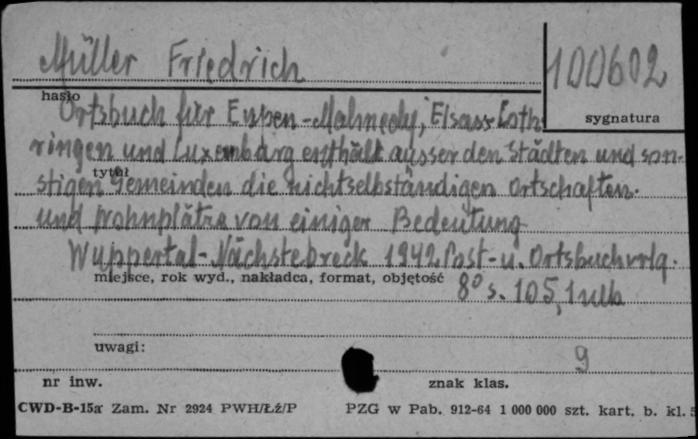 Müller Friedrich
100602
hasło
sygnatura
Ortsbuch für Eupen-Malmedy, Elsass-Loth-
ringen und Luxemburg enthält ausser den Städten und son-
tytuł
stigen Gemeinden die nichtselbständigen Ortschaften.
und Wohnplätze von einiger Bedeutung
Wuppertal-Nächstebreck 1942. Post-u. Ortsbuchvrlg.
miejsce, rok wyd., nakładca, format, objętość
8° s. 105, 1 nlb
uwagi:
9
nr inw.
znak klas.
CWD-B-15a Zam. Nr 2924 PWH/Łź/P
PZG w Pab. 912-64 1 000 000 szt. kart. b. kl. 5